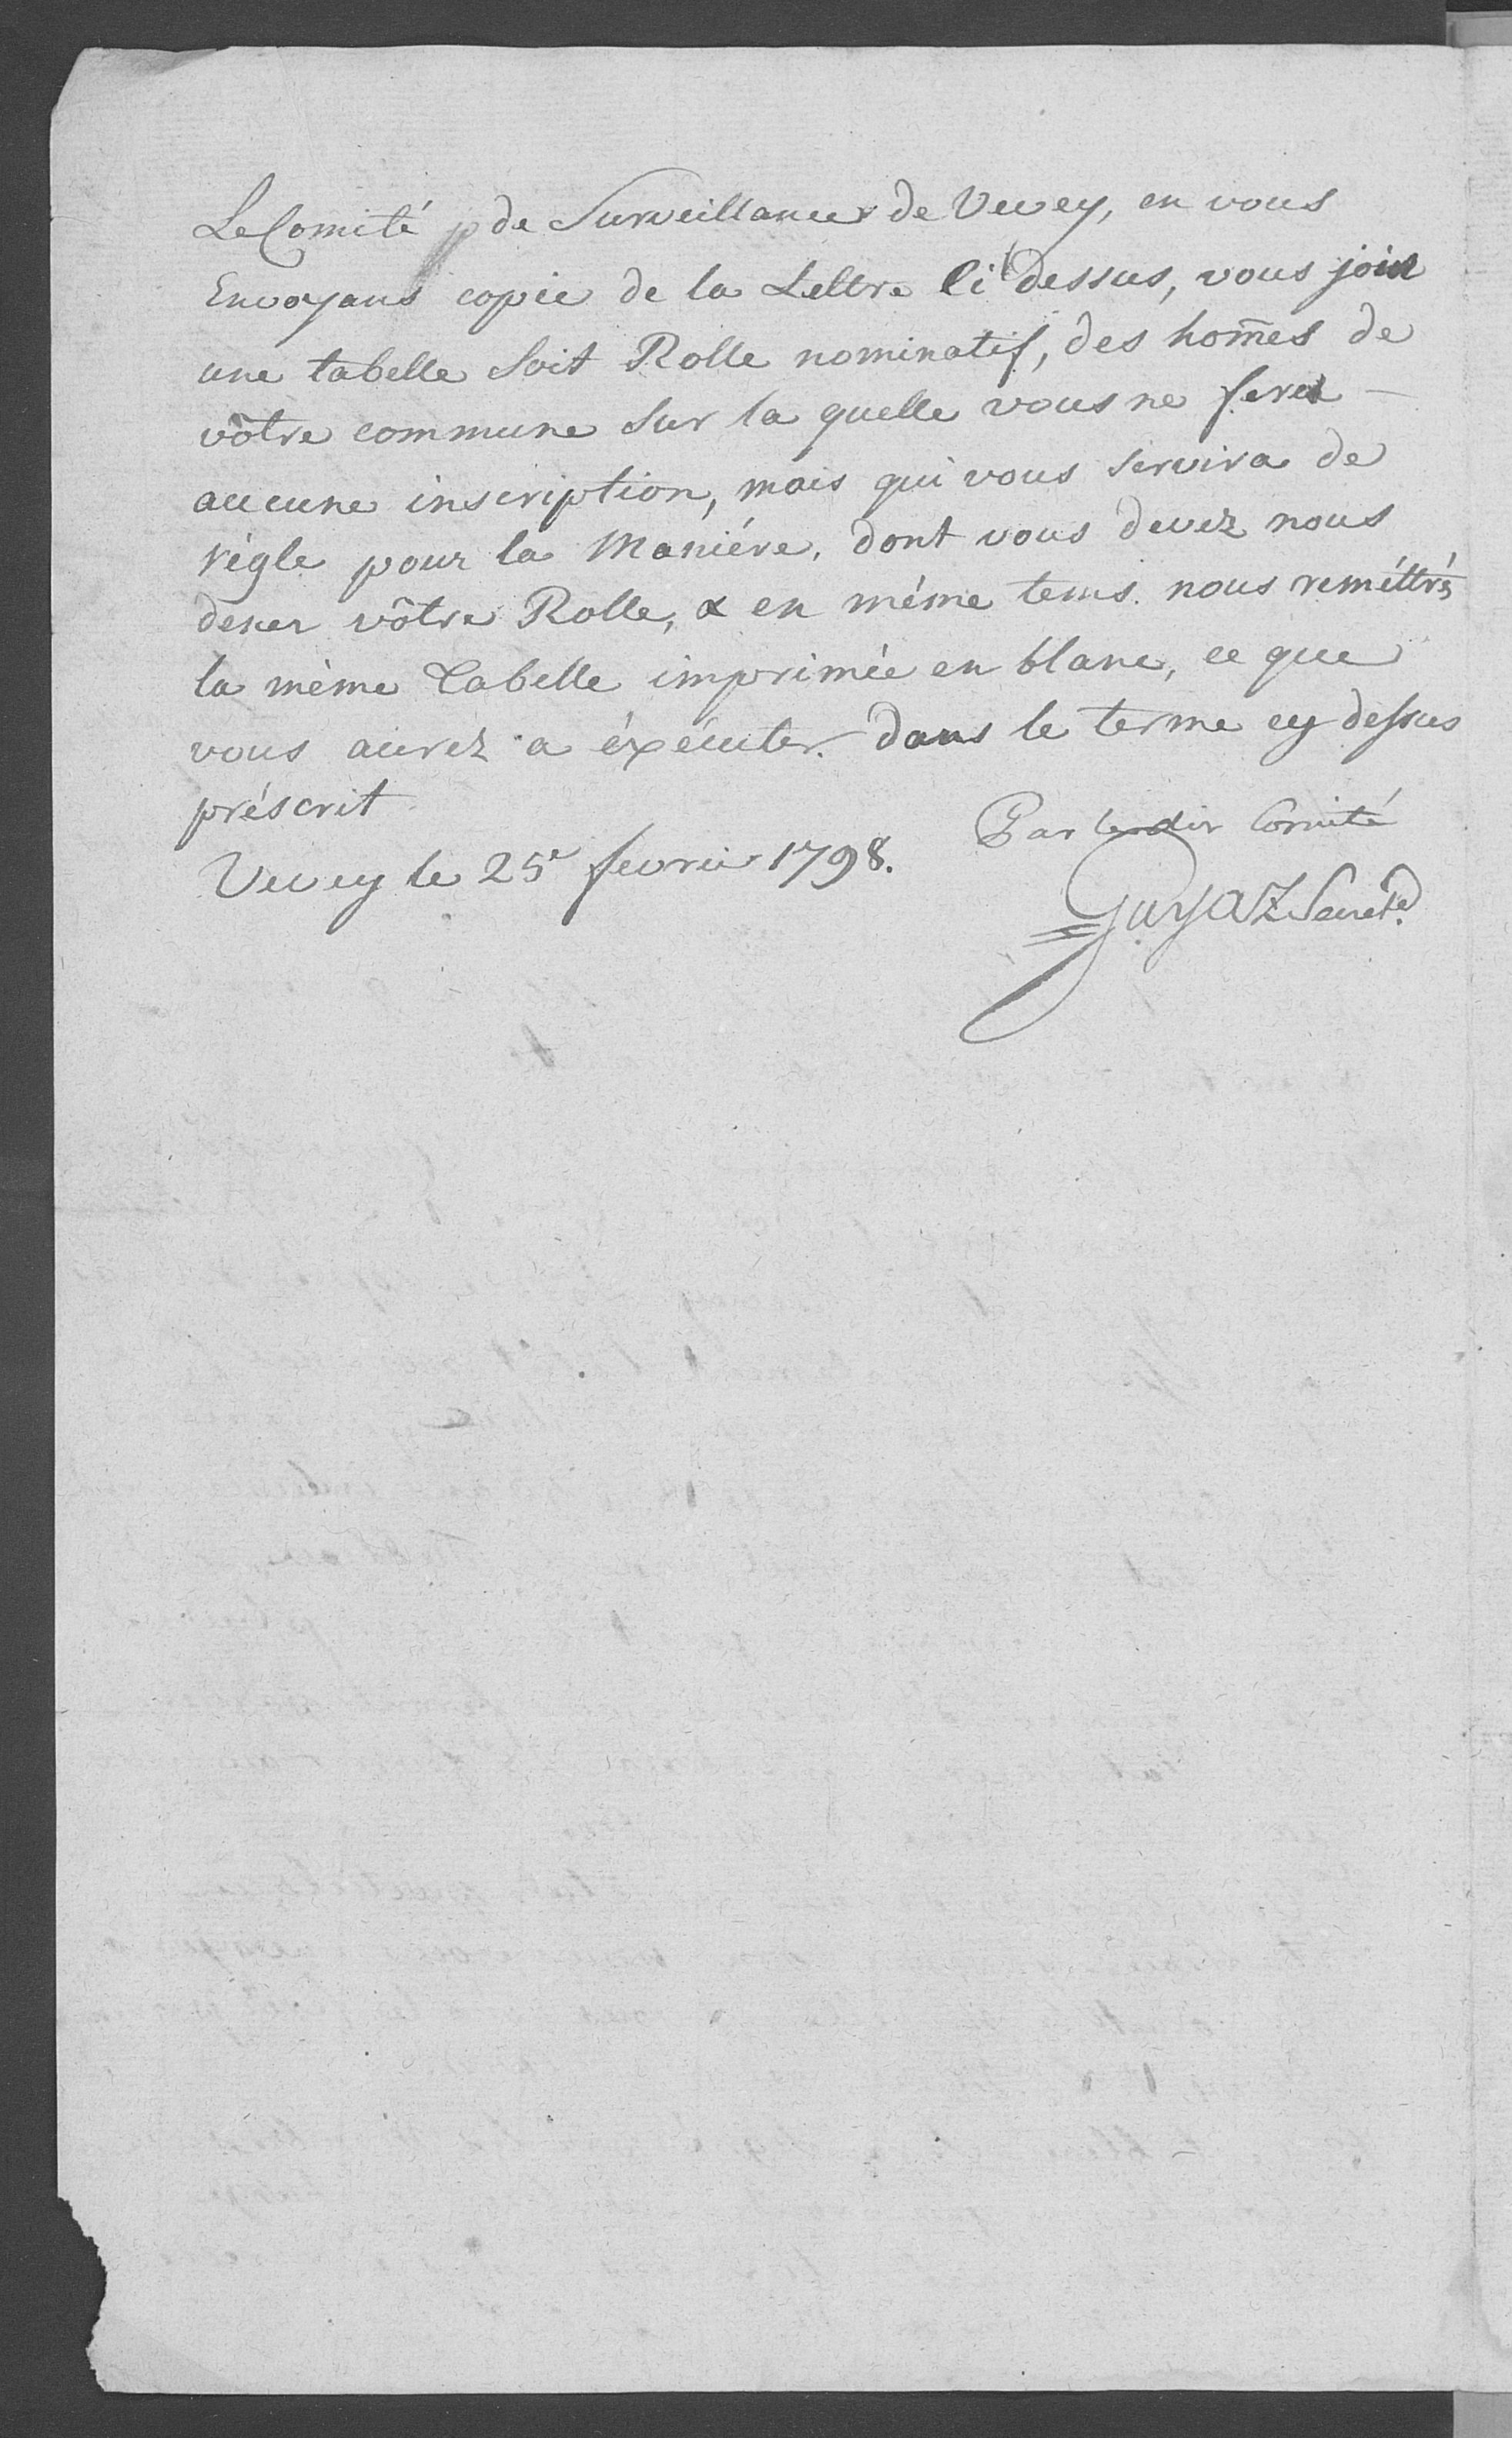 Le Comité p de Surveillance de Vevey, en vous
Envoyant copie de la Lettre Ci dessus, vous joint
une tabelle soit Rolle nominatif, des hom̄es de
vôtre commune sur la quelle vous ne ferez
aucune inscription, mais qui vous servira de
régle pour la Maniére, dont vous devez nous
doner vôtre Rolle, & en même tems nous reméttrés
la même tabelle imprimée en blanc, ce que
vous aurèz a éxécuter dans le terme cy dessus
préscrit
Par le dit Comité
Vevey le 25e fevrier 1798.
Guyaz Secret.